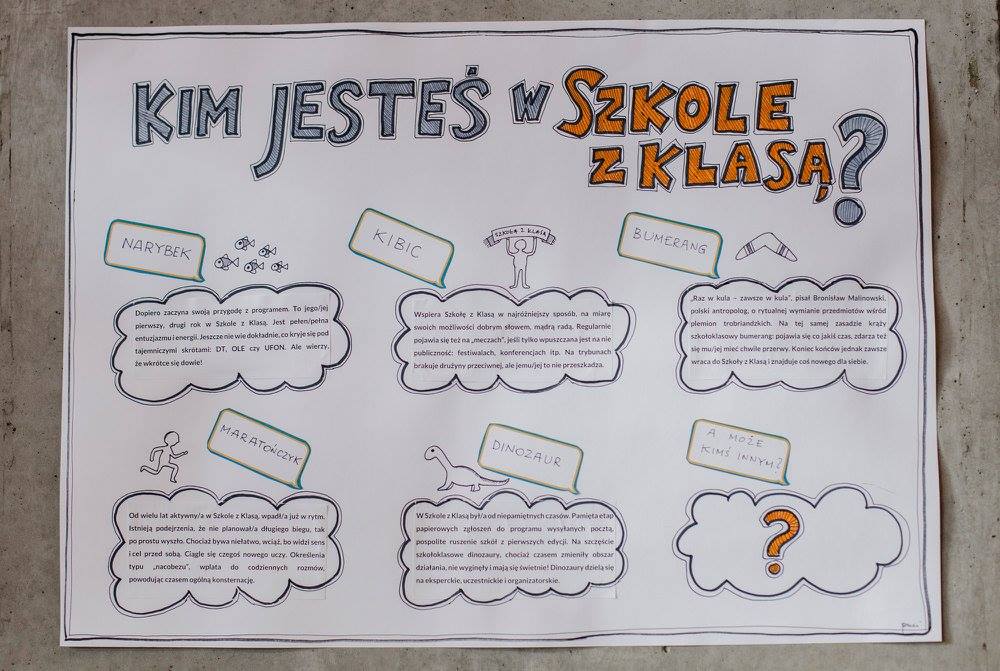 KIM JESTEŚ W SZKOLE
Z KLASĄ?
NARYBEK
Dopiero zaczyna swoją przygodę z programem. To jego/jej
pierwszy, drugi rok w Szkole z Klasą. Jest pełen/pełna
entuzjazmu i energii. Jeszcze nie wie dokładnie, co kryje się pod
tajemniczymi skrótami: DT, OLE czy UFON. Ale wierzy,
że wkrótce się dowie!
KIBIC
SZKOŁA Z KLASĄ
Wspiera Szkołę z Klasą w najróżniejszy sposób, na miarę
swoich możliwości dobrym słowem, mądrą radą. Regularnie
pojawia się też na „meczach”, jeśli tylko wpuszczana jest na nie
publiczność: festiwalach, konferencjach itp. Na trybunach
brakuje drużyny przeciwnej, ale jemu/jej to nie przeszkadza.
BUMERANG
„Raz w kula – zawsze w kula”, pisał Bronisław Malinowski,
polski antropolog, o rytualnej wymianie przedmiotów wśród
plemion trobriandzkich. Na tej samej zasadzie krąży
szkołoklasowy bumerang: pojawia się co jakiś czas, zdarza też
się mu/jej mieć chwile przerwy. Koniec końców jednak zawsze
wraca do Szkoły z Klasą i znajduje coś nowego dla siebie.
MARATOŃCZYK
Od wielu lat aktywny/a w Szkole z Klasą, wpadł/a już w rytm.
Istnieją podejrzenia, że nie planował/a długiego biegu, tak
po prostu wyszło. Chociaż bywa niełatwo, wciąż, bo widzi sens
i cel przed sobą. Ciągle się czegoś nowego uczy. Określenia
typu „nacobezu”, wplata do codziennych rozmów,
powodując czasem ogólną konsternację.
DINOZAUR
W Szkole z Klasą był/a od niepamiętnych czasów. Pamięta etap
papierowych zgłoszeń do programu wysyłanych pocztą,
pospolite ruszenie szkół z pierwszych edycji. Na szczęście
szkołoklasowe dinozaury, chociaż czasem zmieniły obszar
działania, nie wyginęły i mają się świetnie! Dinozaury dzielą się
na eksperckie, uczestnickie i organizatorskie.
A MOŻE
KIMŚ INNYM?
?